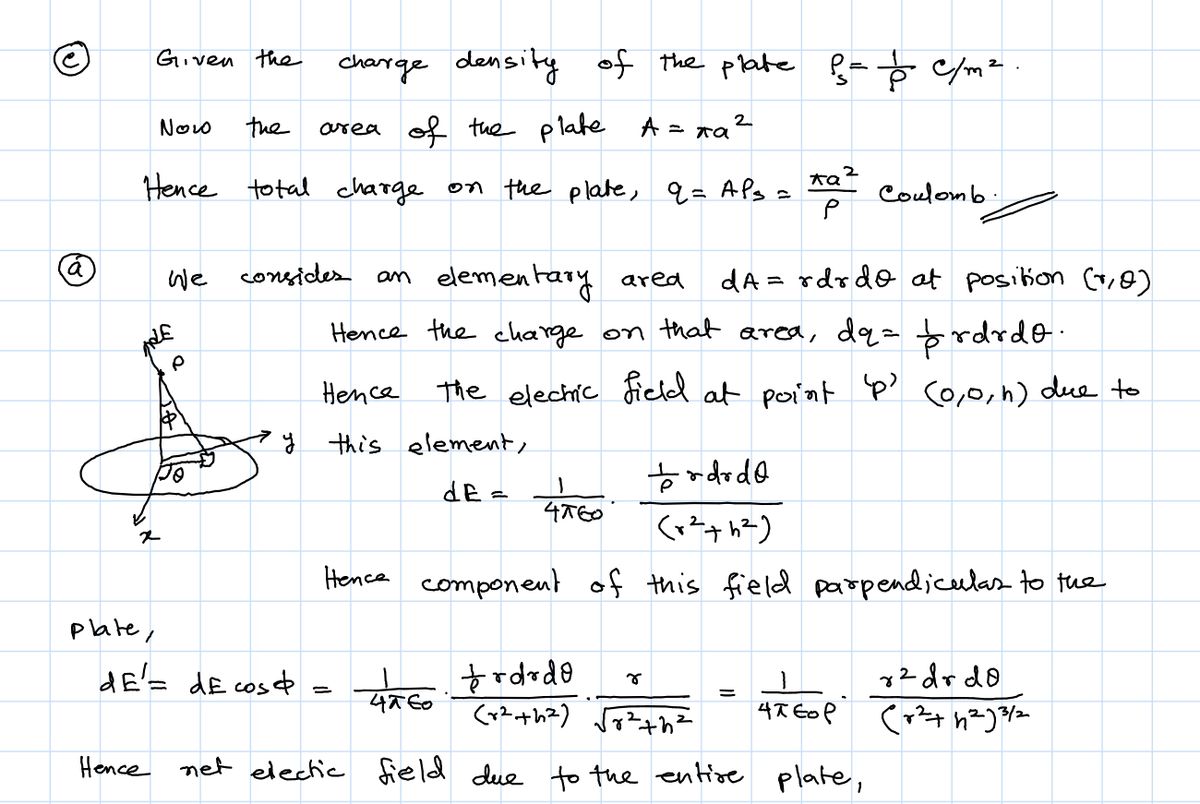 (c) Given the charge density of the plate ρs = 1/ρ C/m².
Now the area of the plate A = πa²
Hence total charge on the plate, q = Aρs = πa²/ρ Coulomb.
(a) We consider an elementary area dA = rdrdθ at position (r,θ)
Hence the charge on that area, dq = 1/ρ rdrdθ.
Hence the electric field at point 'p' (0,0,h) due to
this element,
dE = 1/4πε0 · (1/ρ rdrdθ)/(r²+h²)
dE
P
φ
y
θ
x
Hence component of this field parpendicular to the
plate,
dE' = dE cosφ = 1/4πε0 · (1/ρ rdrdθ)/(r²+h²) · r/√r²+h² = 1/4πε0ρ · r²drdθ/(r²+h²)^3/2
Hence net electic field due to the entire plate,